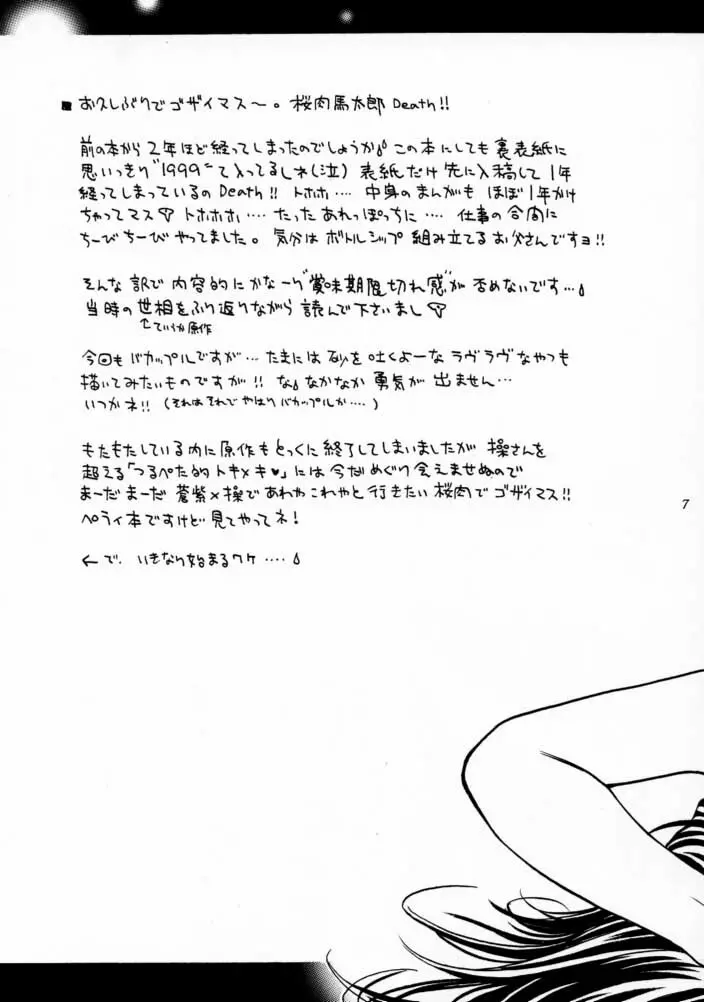 ■お久しぶりでゴザイマス〜。桜肉馬太郎Death!!
前の本から2年ほど経ってしまったのでしょうか この本にしても裏表紙に
思いっきり"1999"て入ってるしネ(泣)表紙だけ先に入稿して1年
経ってしまっているのDeath!! トホホ…. 中身のまんがも ほぼ1年かけ
ちゃってマス トホホホ…. たったあれっぽっちに…. 仕事の合間に
ちーびちーびやってました。気分はボトルシップ組み立てるお父さんですヨ!!
そんな訳で内容的にかなーり"賞味期限切れ感"が否めないです…
当時の世相をふり返りながら読んで下さいまし
↑ていうか原作
今回もバカップルですが… たまには砂を吐くよーなラヴラヴなやつも
描いてみたいものですが!! な、なかなか勇気が出ません…
いつかネ!! (それはそれでやはりバカップルか….)
もたもたしている内に原作もとっくに終了してしまいましたが 操さんを
超える「つるぺた的トキメキ♥」には今だめぐり会えませぬので
まーだまーだ 蒼紫×操であれやこれやと行きたい桜肉でゴザイマス!!
ペライ本ですけど見てやってネ!
←で、いきなり始まるワケ….
7